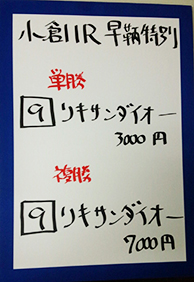 小倉11R 早鞆特別
単勝
9 リキサンダイオー
3000円
複勝
9 リキサンダイオー
7000円